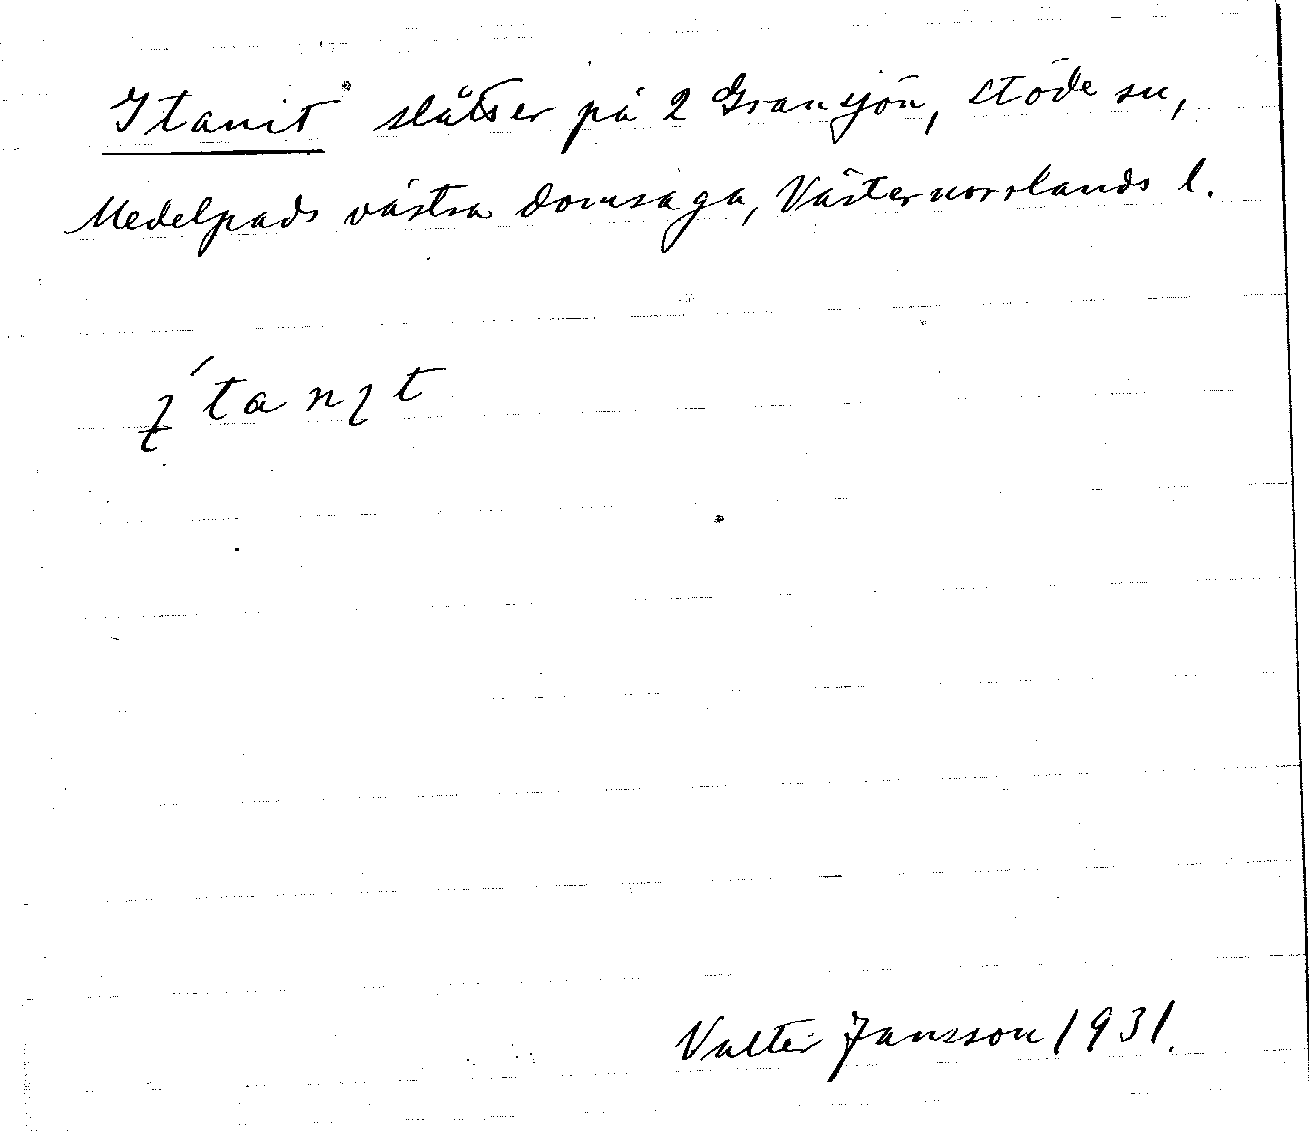 Itanit slåtter på 2 Gransjön, Stöde sn,
Medelpads västra domsaga, Västernorrlands l.
Valter Jansson 1931.